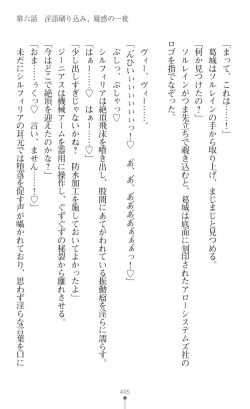 第六話　淫語刷り込み、疑惑の一夜
「待って、これは……！」
葛城はソルレインの手から取り上げ、まじまじと見つめる。
「何か見つけたの？」
ソルレインがつま先立ちで覗き込むと、葛城は底面に刻印されたアローシステムズ社の
ロゴを指でなぞった。
ヴィー、ヴィー……。
「んひいいいいいいっ！♡　あ、あ、あああああぁぁっ！♡」
ぷしっ、ぷしゃっ♡
シルフィリアは絶頂飛沫を噴き出し、股間にあてがわれている振動器を淫らに濡らす。
「はぁーー♡　はぁーー♡」
「少し出しすぎじゃないかね？　防水加工を施しておいてよかったよ」
ジーニアスは機械アームを器用に操作し、ぐずぐずの秘裂から離れさせる。
「今はどこで絶頂を迎えたのかな？」
「おま……ぅくっ♡　言い、ません……！♡」
未だにシルフィリアの耳元では堕落を促す声が囁かれており、思わず淫らな言葉を口に
405